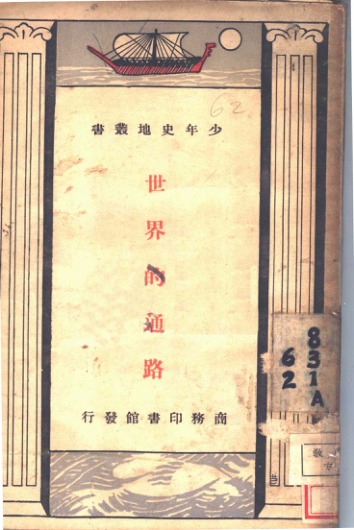 62
少年史地叢書
世界的通路
商務印書館發行
831A
62
教